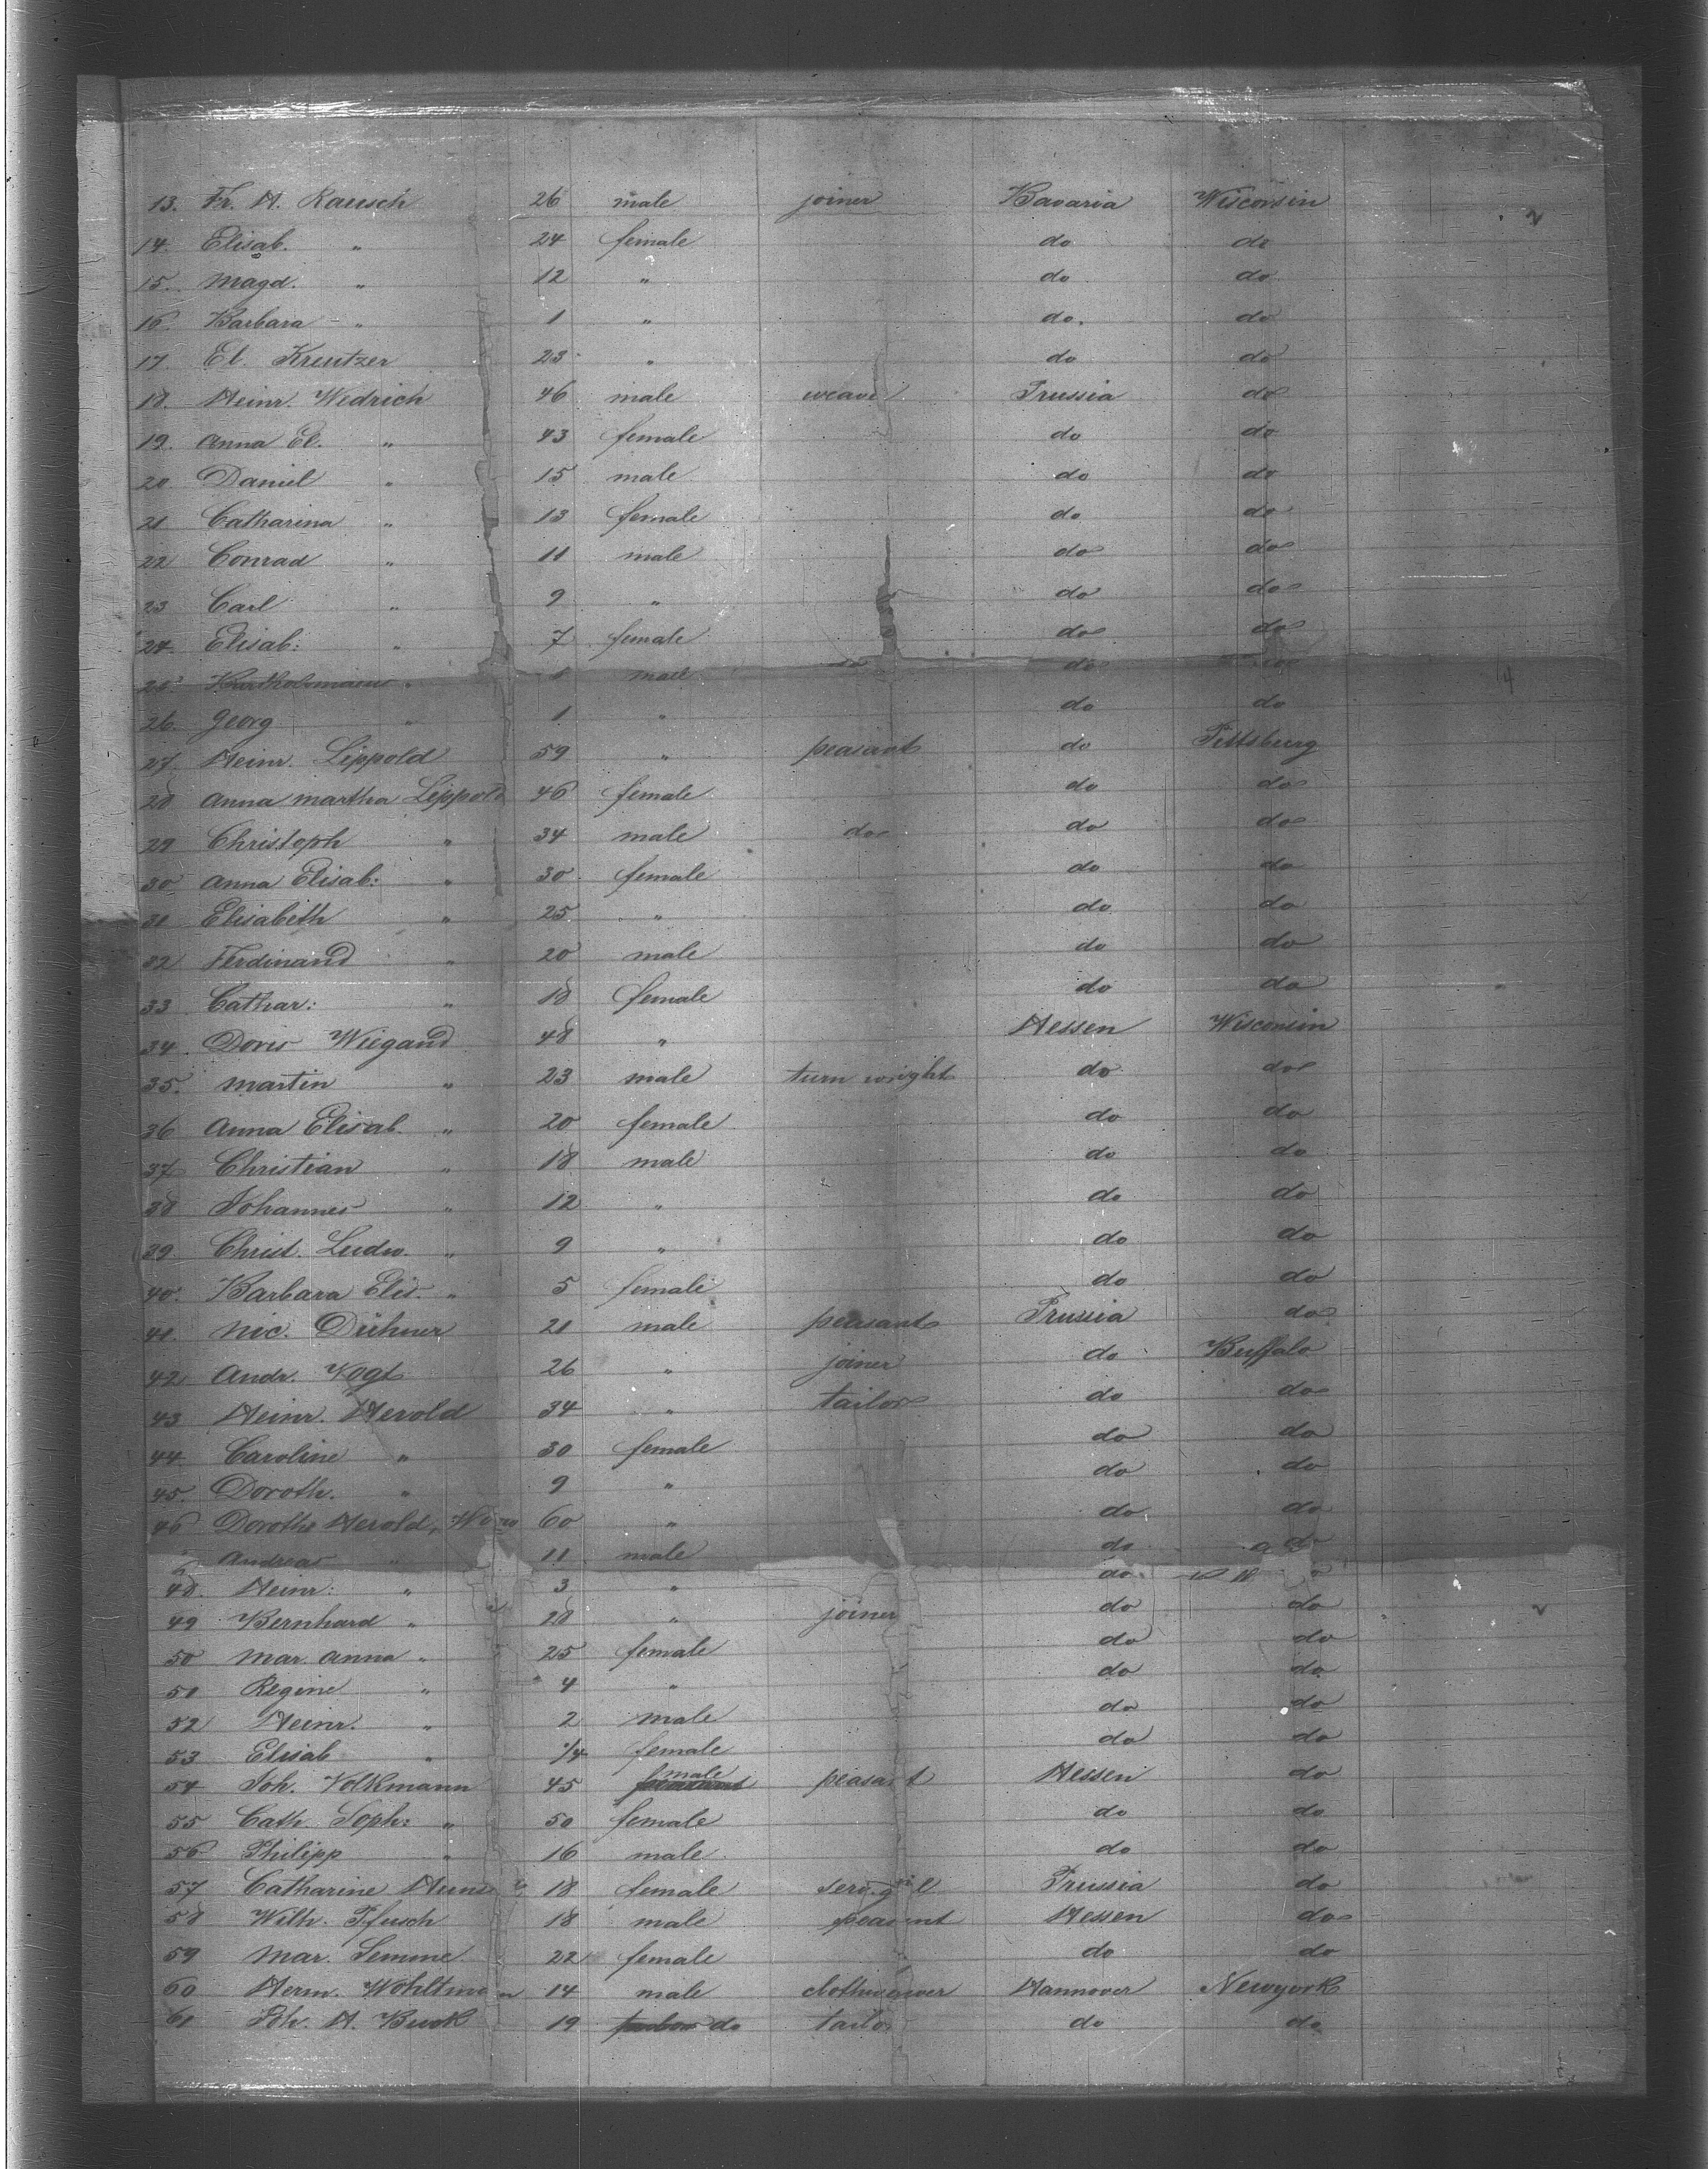 13. Fr. H. Rausch 26 male joiner Bavaria Wisconsin 2
14. Elisab. " 24 female do do
15. Magd. " 12 " do do
16. Barbara " 1 " do. do
17. El. Kreutzer 23 " do do
18. Heinr. Wedrich 46 male weave Prussia do
19. Anna El. " 43 female do do
20. Daniel " 15 male do do
21 Catharina " 13 female do do
22 Conrad " 11 male do do
23 Carl " 9 " do do
24. Elisab: " 7 female do do
25 " male do
26. Georg " 1 " do do
27. Heinr. Lippold 59 " peasant do Pittsburg
28 Anna Martha Lippold 46 female do do
29 Christoph " 34 male do do do
30 Anna Elisab: " 30 female do do
31 Elisabeth " 25 " do do
32 Ferdinand " 20 male do do
33 Cathar: " 18 female do do
34. Doris Wiegand 48 " Hessen Wisconsin
35. Martin " 23 male turn wright do do
36 Anna Elisab. " 20 female do do
37 Christian " 18 male do do
38 Johannes " 12 " do do
39. Christ. Ludw. " 9 " do do
40. Barbara Elis. " 5 female do do
41. Nic. Dühner 21 male peasant Prussia do
42 Andr. Vogt 26 " joiner do Buffalo
43 Heinr. Herold 34 " tailor do do
44 Caroline " 30 female do do
45. Doroth. " 9 " do do
46 Dorothe Herold, 60 " do do
Andreas " 11 male do do
48. Heinr: " 3 " do
49 Bernhard " 28 " joiner do do
50 Mar. Anna " 25 female do do
51 Regine " 4 " do do
52 Heinr. " 2 male do do
53 Elisab " 1/4 female do do
54 Joh. Volkmann 45 male peasant Hessen do
55 Cath. Soph: " 50 female do do
56 Philipp " 16 male do do
57 Catharine 18 female serv. girl Prussia do
58 Wilh. Pfusch 18 male peasant Hessen do
59 Mar. Semme 22 female do do
60 Herm. Wohltman 14 male Hannover Newyork
61 Joh. H. Buck 19 do tailor do do